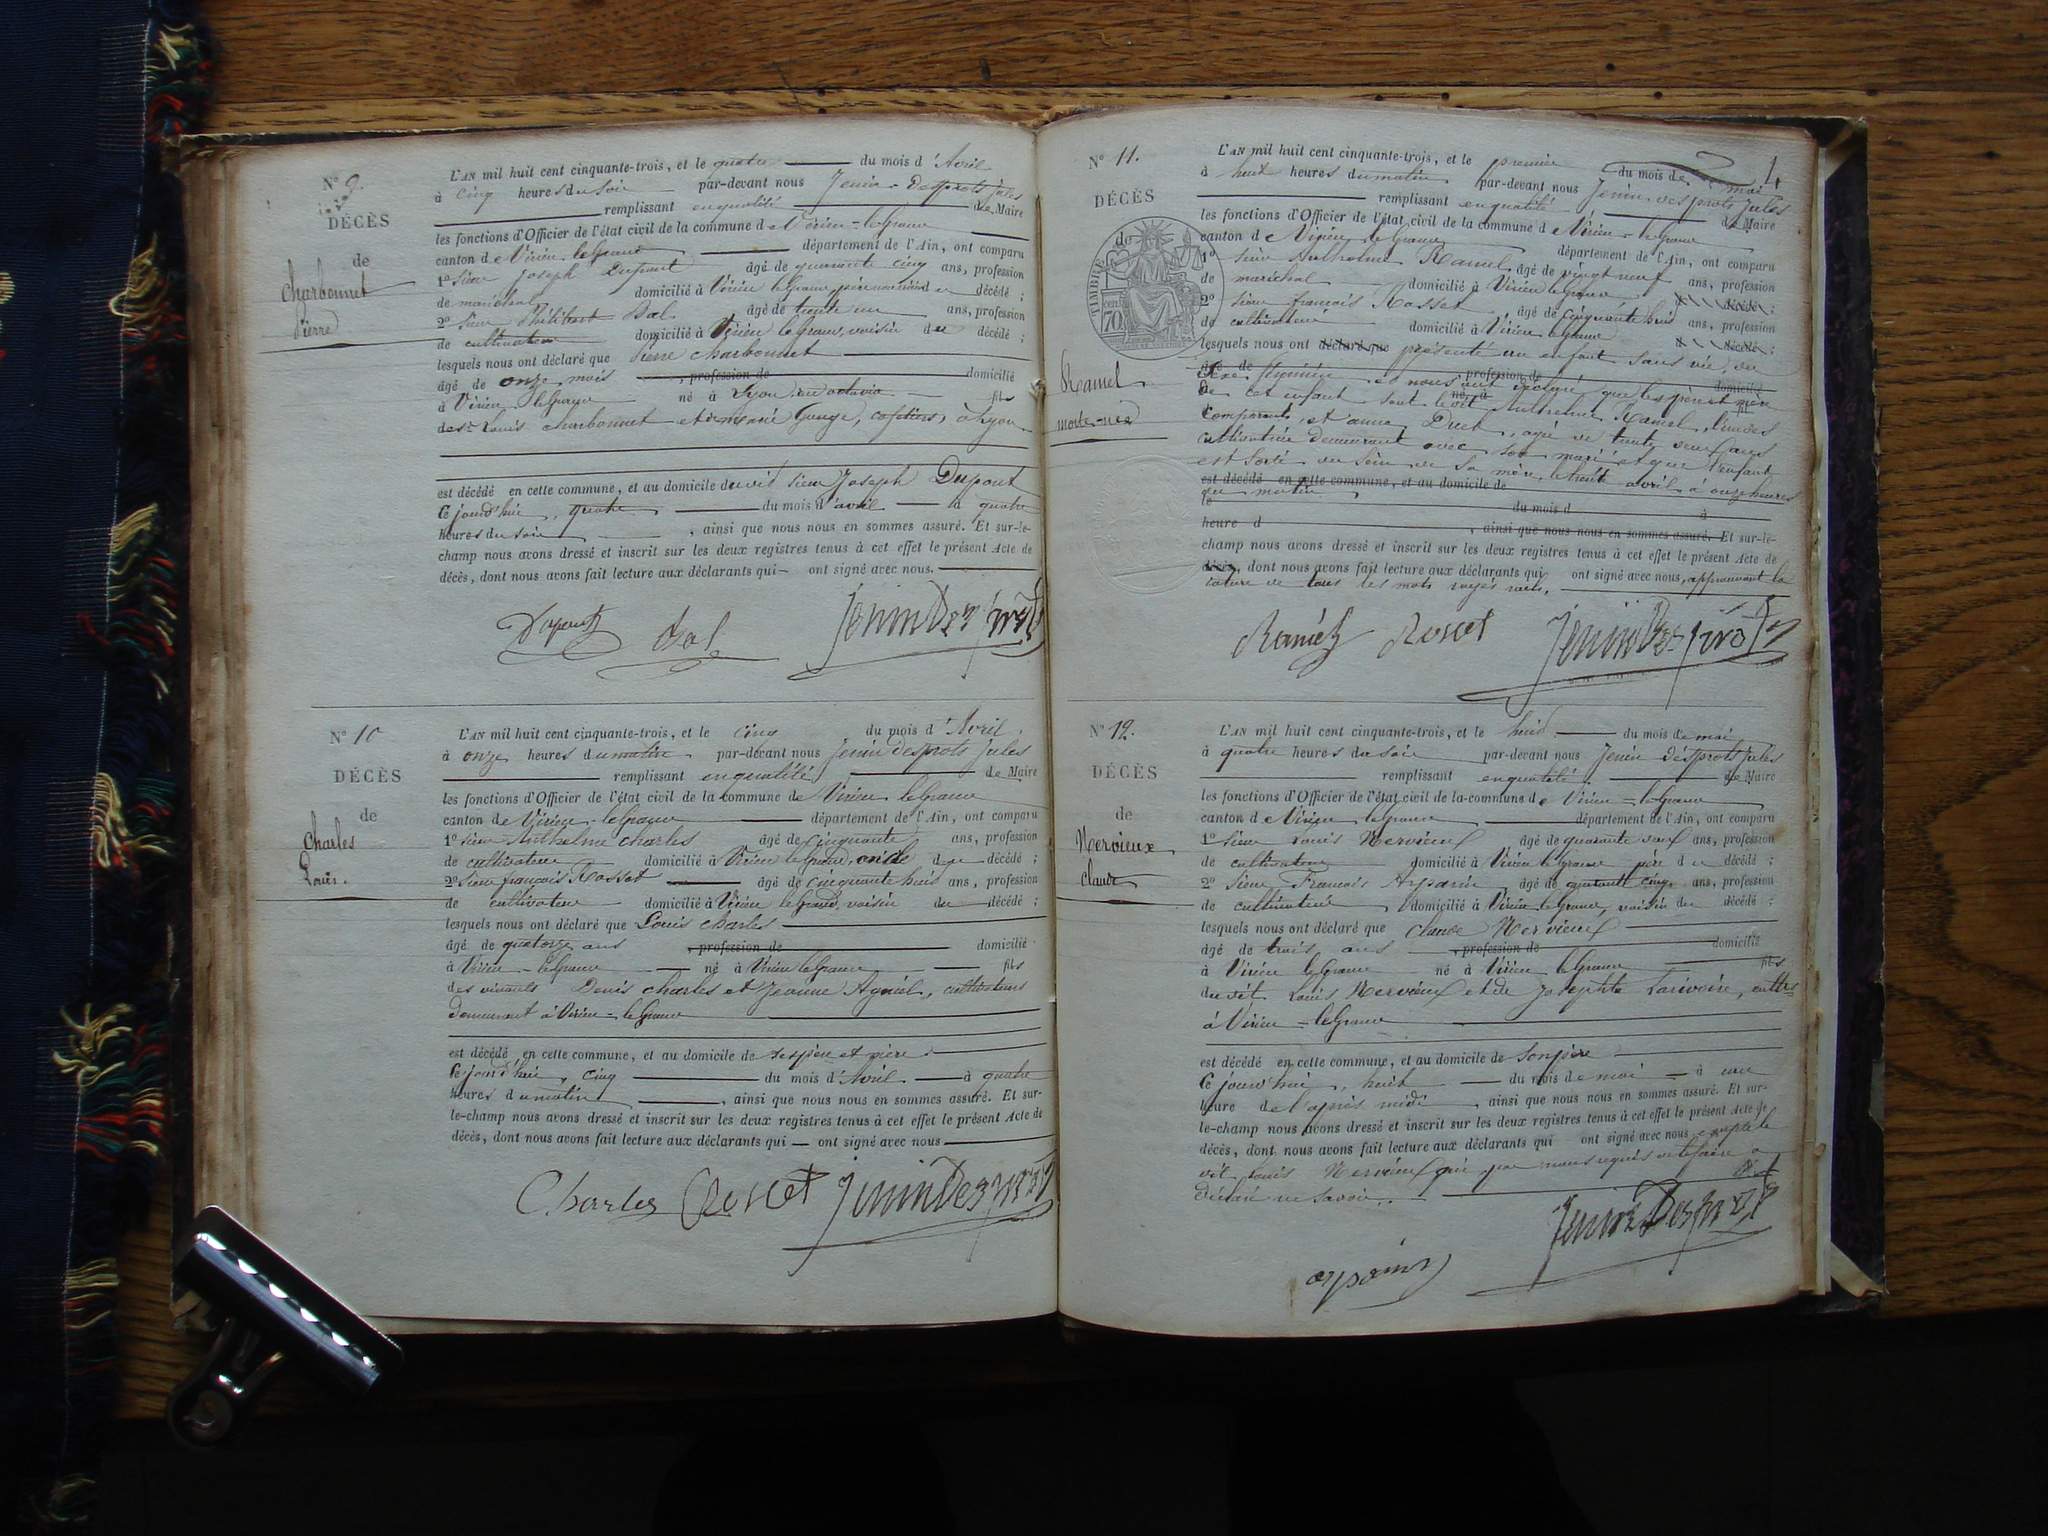 N° 9.
DÉCÈS
de
Charbonnet
Pierre
L'AN mil huit cent cinquante-trois, et le quatre du mois d'Avril
à cinq heures du soir par-devant nous Jenin-Desprots jules
remplissant en qualité de Maire
les fonctions d'Officier de l'état civil de la commune de Virieu-le Grand
canton de Virieu le Grand département de l'Ain, ont comparu
1° sieur joseph Dupont âgé de quarante cinq ans, profession
de maréchal domicilié à Virieu le Grand, décédé ;
2° sieur Philibert âgé de trente un ans, profession
de cultivateur domicilié à Virieu le Grand, voisin du décédé ;
lesquels nous ont déclaré que Pierre Charbonnet
âgé de onze mois , profession de domicilié
à Virieu le Grand né à Lyon fils
de Sr Louis Charbonnet et de marie cafetiers, à Lyon
est décédé en cette commune, et au domicile du dit sieur Joseph Dupont
Ce jourd'hui, quatre du mois d'avril à quatre
heures du soir , ainsi que nous nous en sommes assuré. Et sur-le-
champ nous avons dressé et inscrit sur les deux registres tenus à cet effet le présent Acte de
décès, dont nous avons fait lecture aux déclarants qui ont signé avec nous.
Dupont Jenin Desprots
N° 10
DÉCÈS
de
Charles
Louis.
L'AN mil huit cent cinquante-trois, et le cinq du mois d'Avril
à onze heures du matin par-devant nous Jenin desprots jules
remplissant en qualité de Maire
les fonctions d'Officier de l'état civil de la commune de Virieu le Grand
canton de Virieu-le Grand département de l'Ain, ont comparu
1° sieur Anthelme Charles âgé de cinquante ans, profession
de cultivateur domicilié à Virieu le Grand, oncle du décédé ;
2° sieur françois Rosset âgé de cinquante huit ans, profession
de cultivateur domicilié à Virieu le Grand, voisin du décédé ;
lesquels nous ont déclaré que Louis Charles
âgé de quatorze ans , profession de domicilié
à Virieu-le Grand né à Virieu le Grand fils
des vivants Denis Charles et Jeanne Aguiel, cultivateurs
demeurant à Virieu-le Grand
est décédé en cette commune, et au domicile de ses père et mère
Ce jourd'hui, cinq du mois d'Avril à quatre
heures du matin , ainsi que nous nous en sommes assuré. Et sur-
le-champ nous avons dressé et inscrit sur les deux registres tenus à cet effet le présent Acte de
décès, dont nous avons fait lecture aux déclarants qui ont signé avec nous
Charles Rosset Jenin Desprots
4
N° 11.
DÉCÈS
de
TIMBRE
70
Ramel
morte-née
L'AN mil huit cent cinquante-trois, et le premier du mois de mai
à huit heures du matin par-devant nous Jenin desprots jules
remplissant en qualité de Maire
les fonctions d'Officier de l'état civil de la commune de Virieu-le Grand
canton de Virieu le Grand département de l'Ain, ont comparu
1° sieur Anthelme Ramel âgé de vingt neuf ans, profession
de maréchal domicilié à Virieu le Grand décédé ;
2° sieur françois Rosset âgé de cinquante huit ans, profession
de cultivateur domicilié à Virieu le Grand décédé ;
lesquels nous ont déclaré que présenté un enfant sans vie, du
âgé de sexe féminin , profession de et nous ont déclaré que les père et mère domicilié
de cet enfant sont le dit né à Anthelme Ramel, l'un des fil
comparants, et anne Duet, agée de trente deux ans
cultivatrice demeurant avec son mari et que l'enfant
est sorti du sein de sa mère, le trente avril à onze heures
est décédé en cette commune, et au domicile de
du matin
le du mois d à
heure d , ainsi que nous nous en sommes assuré. Et sur-le-
champ nous avons dressé et inscrit sur les deux registres tenus à cet effet le présent Acte de
décès, dont nous avons fait lecture aux déclarants qui ont signé avec nous, approuvant la
rature de tous les mots rayés nuls.
Ramel Rosset Jenin Desprots
N° 12.
DÉCÈS
de
Nervieux
claude
L'AN mil huit cent cinquante-trois, et le huit du mois de mai
à quatre heures du soir par-devant nous Jenin desprots jules
remplissant en qualité de Maire
les fonctions d'Officier de l'état civil de la commune de Virieu-le Grand
canton de Virieu le Grand département de l'Ain, ont comparu
1° sieur Louis Nervieux âgé de quarante deux ans, profession
de cultivateur domicilié à Virieu le Grand père du décédé ;
2° sieur François Arparin âgé de quarante cinq ans, profession
de cultivateur domicilié à Virieu le Grand, voisin du décédé ;
lesquels nous ont déclaré que Claude Nervieux
âgé de trois ans , profession de domicilié
à Virieu le Grand né à Virieu le Grand fils
du dit Louis Nervieux et de Josephte Larivoire, cultrs
à Virieu-le Grand
est décédé en cette commune, et au domicile de son père
Ce jourd'hui, huit du mois de mai à une
heure de l'après midi , ainsi que nous nous en sommes assuré. Et sur-
le-champ nous avons dressé et inscrit sur les deux registres tenus à cet effet le présent Acte de
décès, dont nous avons fait lecture aux déclarants qui ont signé avec nous excepté le
dit Louis Nervieux qui par nous requis de le faire a
déclaré ne savoir.
Jenin Desprots
arparin